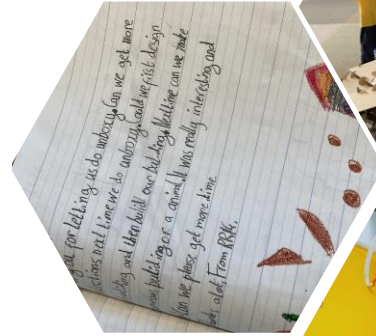 you for letting us do unboxy. Can we get more
ctions next time we do unboxy, could we first design
thing and then build our building. Next time can we make
building or a animal. It was really interesting and
Can we please get more time.
alot, From